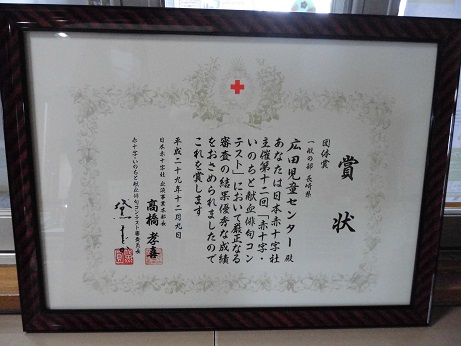 賞状
団体賞
一般の部 長崎県
広田児童センター 殿
あなたは日本赤十字社
主催第十二回「赤十字・
いのちと献血俳句コン
テスト」において厳正なる
審査の結果優秀な成績
をおさめられましたので
これを賞します
平成二十九年十二月九日
日本赤十字社 血液事業本部長
高橋孝喜
赤十字・いのちと献血俳句コンテスト審査員長